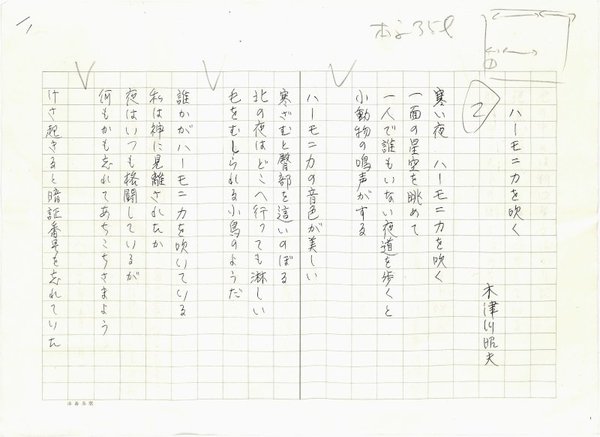 ハーモニカを吹く
木津川昭夫
②
寒い夜　ハーモニカを吹く
一面の星空を眺めて
一人で誰もいない夜道を歩くと
小動物の鳴声がする
ハーモニカの音色が美しい
寒ざむと臀部を這いのぼる
北の夜はどこへ行っても淋しい
毛をむしられる小鳥のようだ
誰かがハーモニカを吹いている
私は神に見離されたか
夜はいつも格闘しているが
何もかも忘れてあちこちさまよう
けさ起きると暗証番号を忘れていた